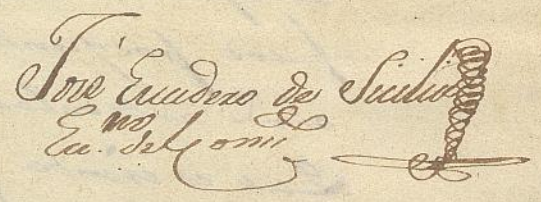 José Escudero de Sicilia
Es.no del Comi.do